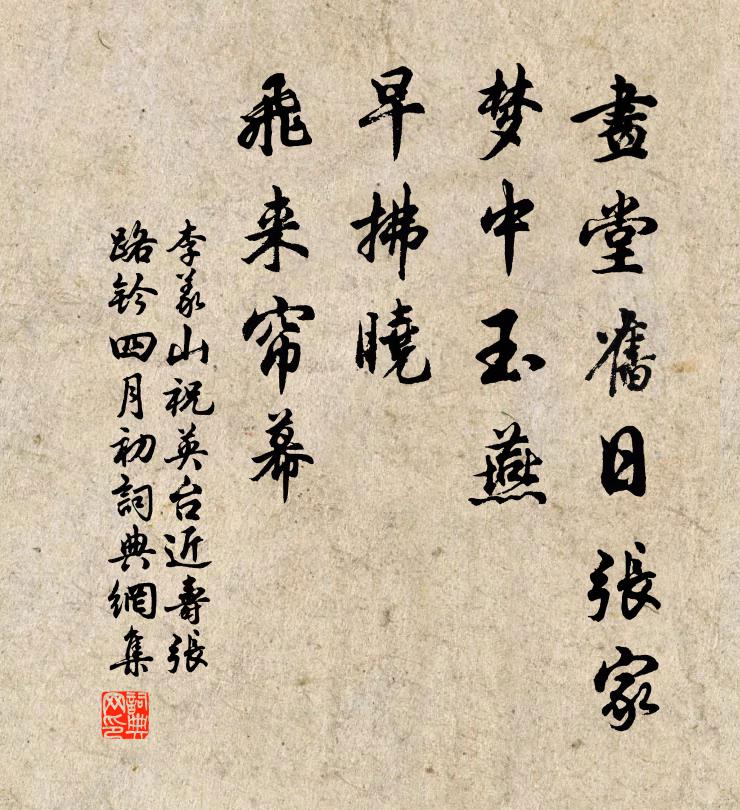 畫堂舊日張家
梦中玉燕
早拂曉
飛来帘幕
李義山祝英台近壽張
路鈐四月初詞典網集
詞典
网印